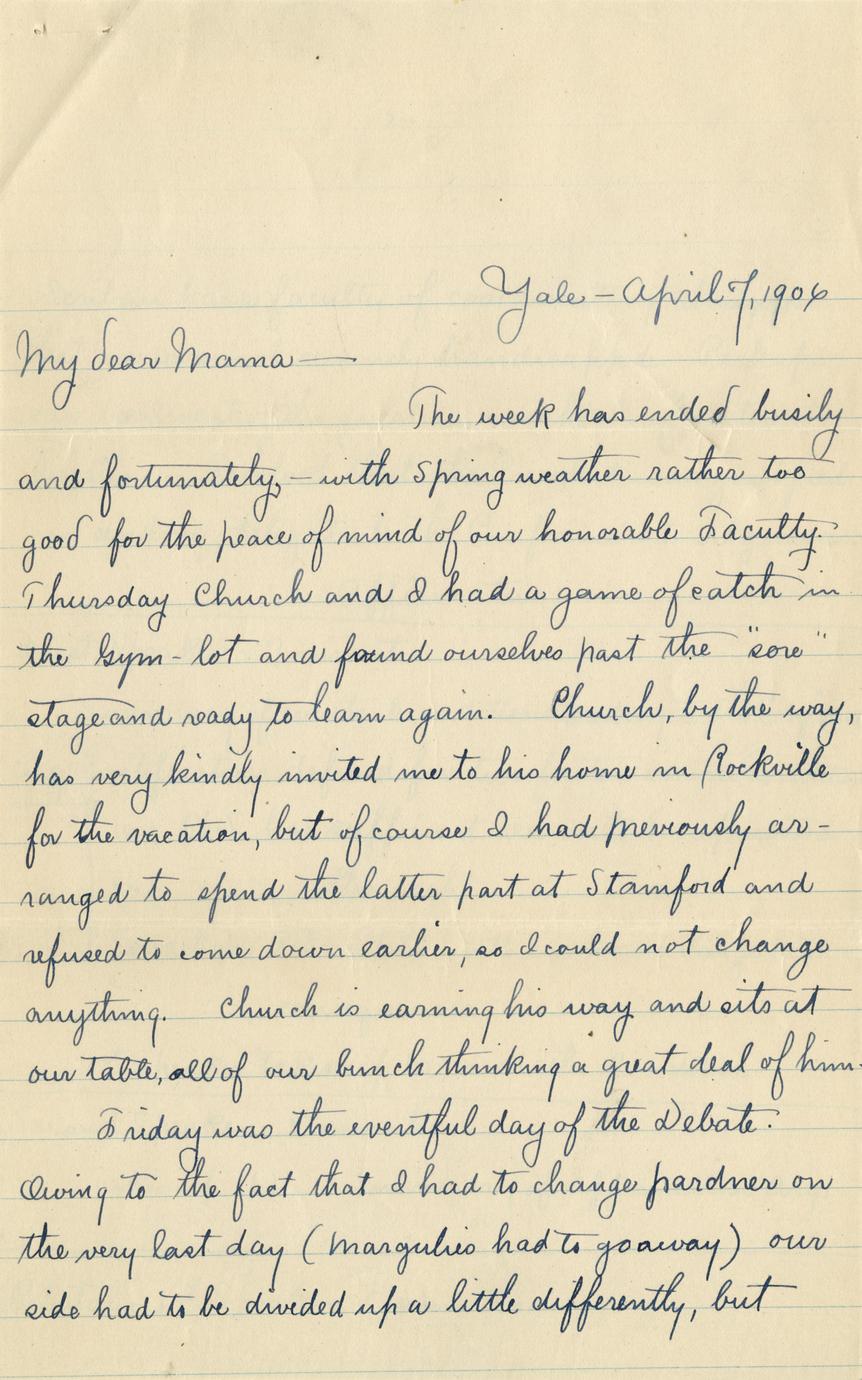 Yale – April 7, 1906
My dear Mama —
The week has ended busily
and fortunately, – with Spring weather rather too
good for the peace of mind of our honorable Faculty.
Thursday Church and I had a game of catch in
the Gym-lot and found ourselves past the "sore"
stage and ready to learn again. Church, by the way,
has very kindly invited me to his home in Rockville
for the vacation, but of course I had previously ar-
ranged to spend the latter part at Stamford and
refused to come down earlier, so I could not change
anything. Church is earning his way and sits at
our table, all of our bunch thinking a great deal of him.
Friday was the eventful day of the Debate.
Owing to the fact that I had to change pardner on
the very last day (Margulies had to go away) our
side had to be divided up a little differently, but